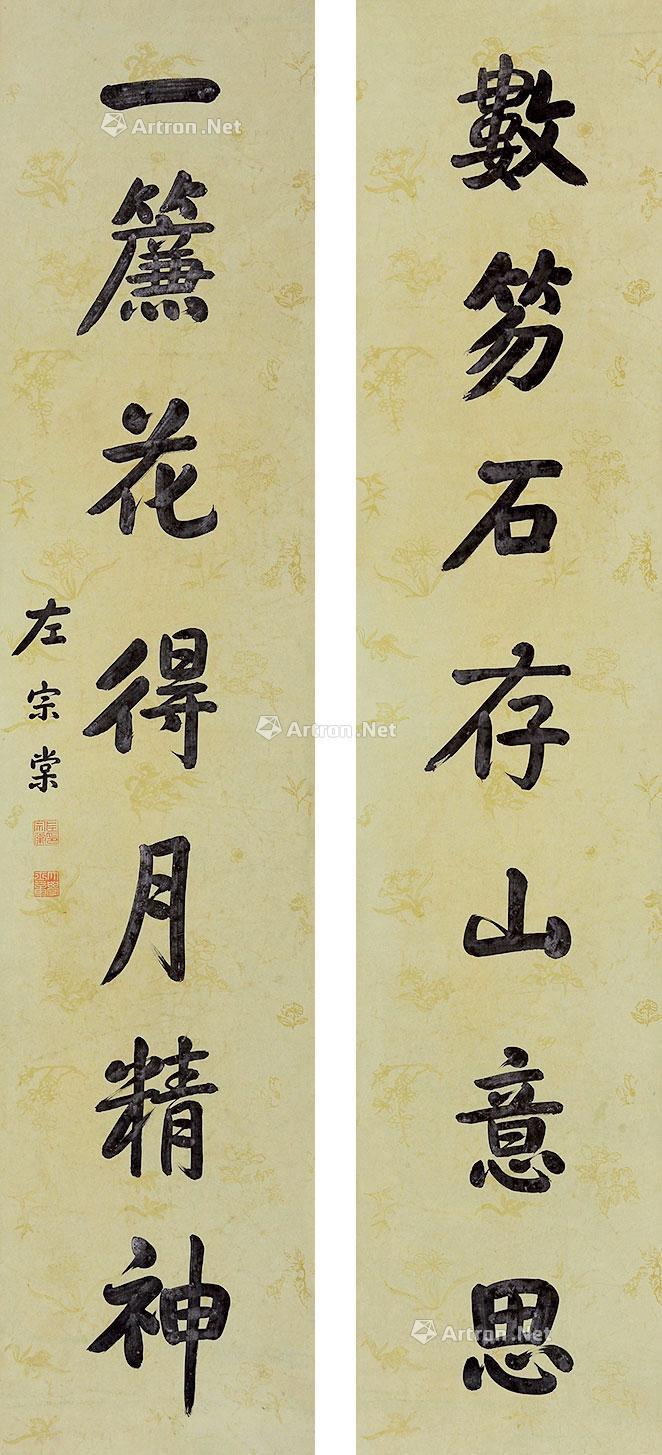 數笏石存山意思
一簾花得月精神
左宗棠
Artron.Net
Artron.Net
Artron.Net